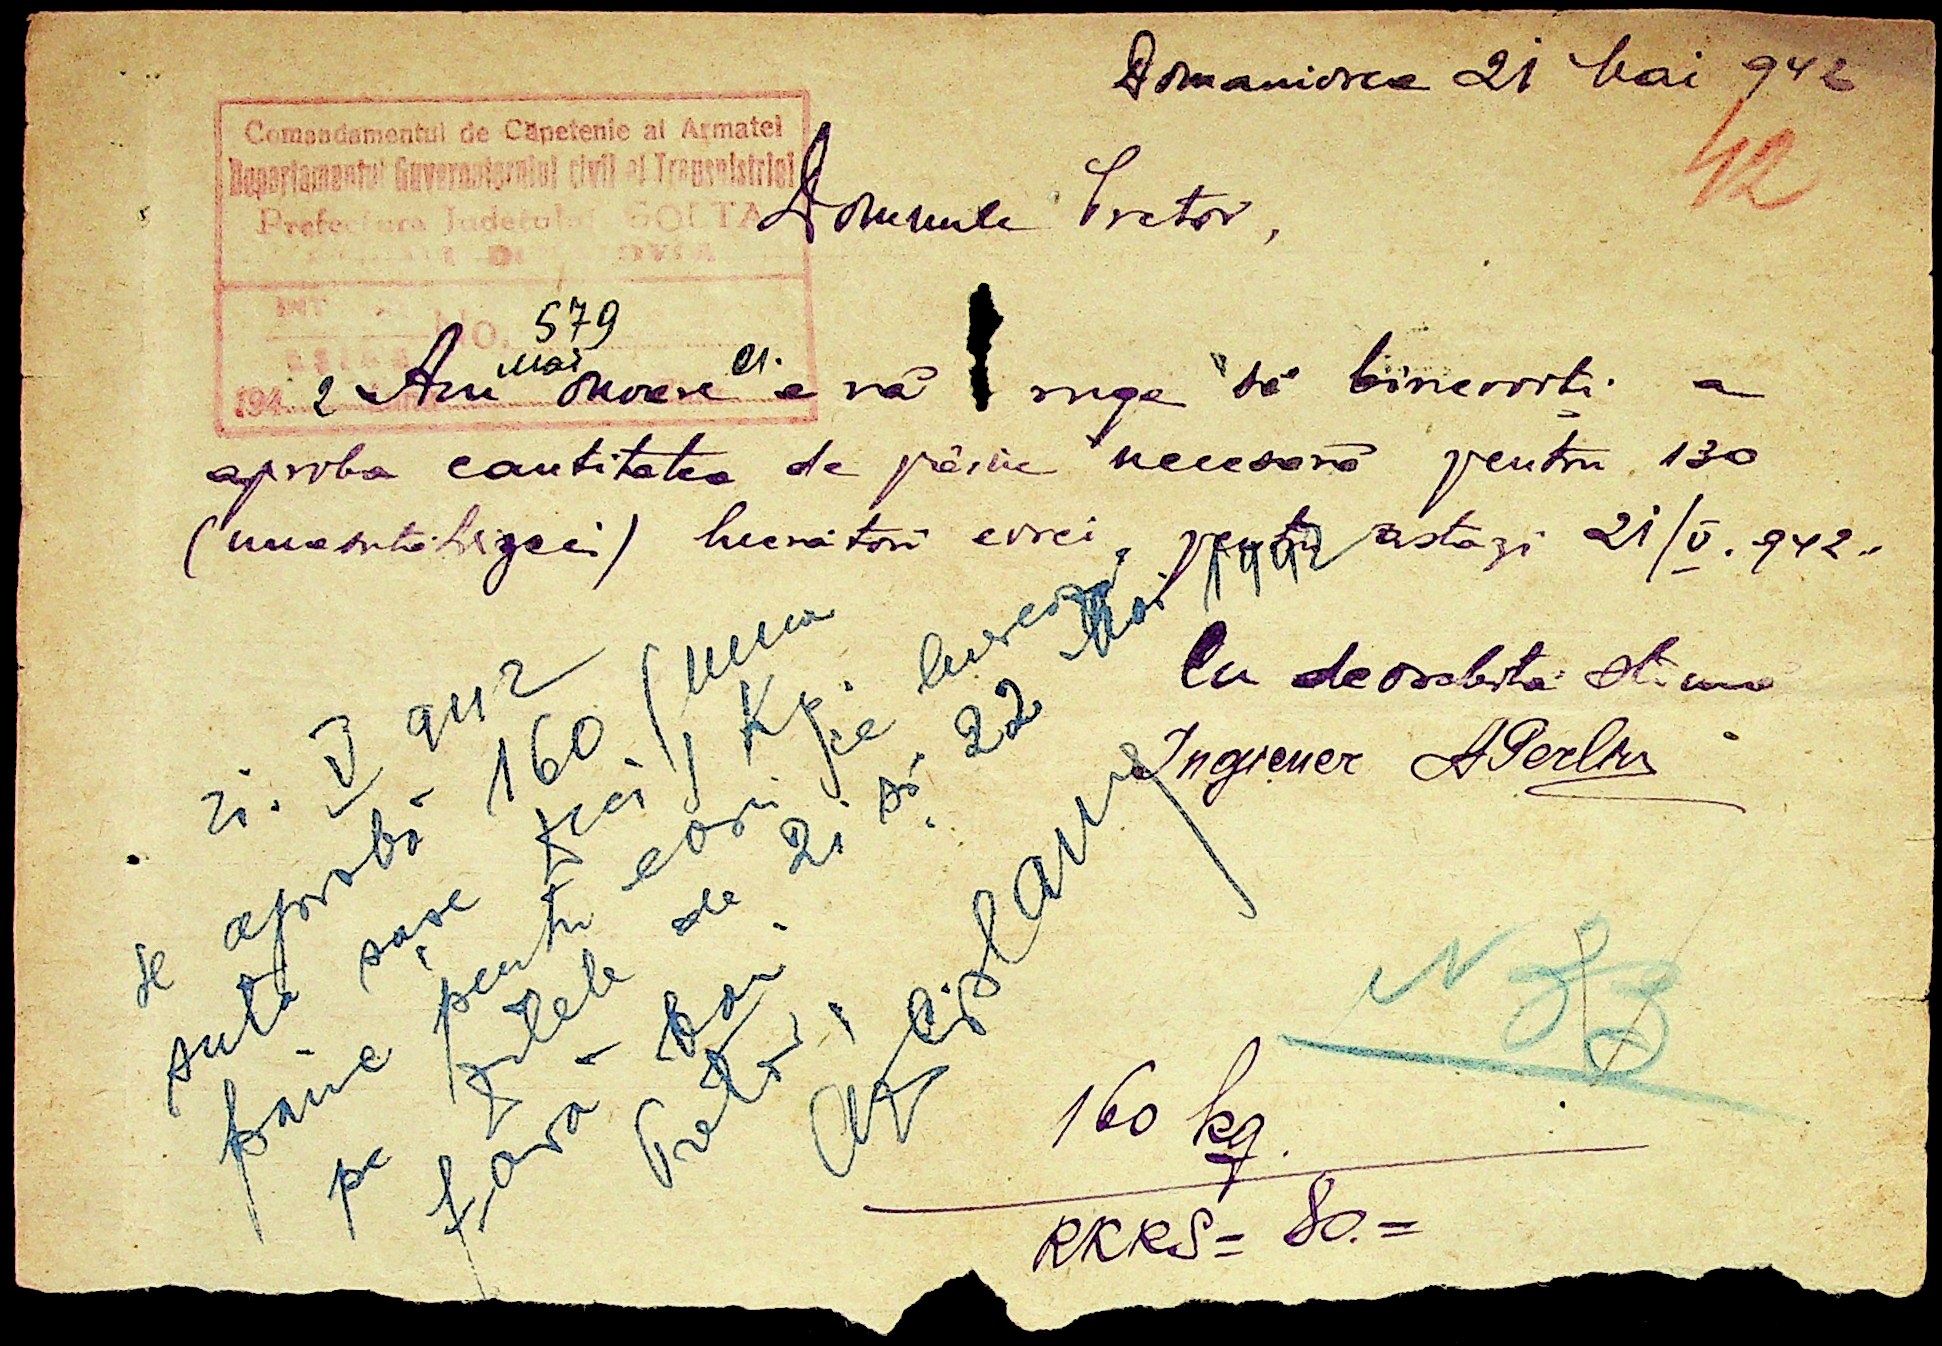 Domaniovca 21 Mai 942
42
Comandamentul de Căpetenie al Armatei
Departamentul Guvernatorului civil al Transnistriei
Prefectura Judetului GOLTA
No. 579
194 2 Mai 21.
Domnule Pretor,
Am onoare a vă ruga să binevoiți a
aproba cantitatea de pâine necesară pentru 130
(unasutătrizeci) lucrători evrei, pentru astazi 21/V. 942.
Cu deosebita stimă
Inginer A Perlin
21. V 942
se aprobă 160 (una
sută șase zeci) Kgr
pâine pentru evrei ce lucrează
pe zilele de 21 și 22 Mai 1942
fără bani.
Pretor,
N 33
160 kg.
RKKS = 80. =